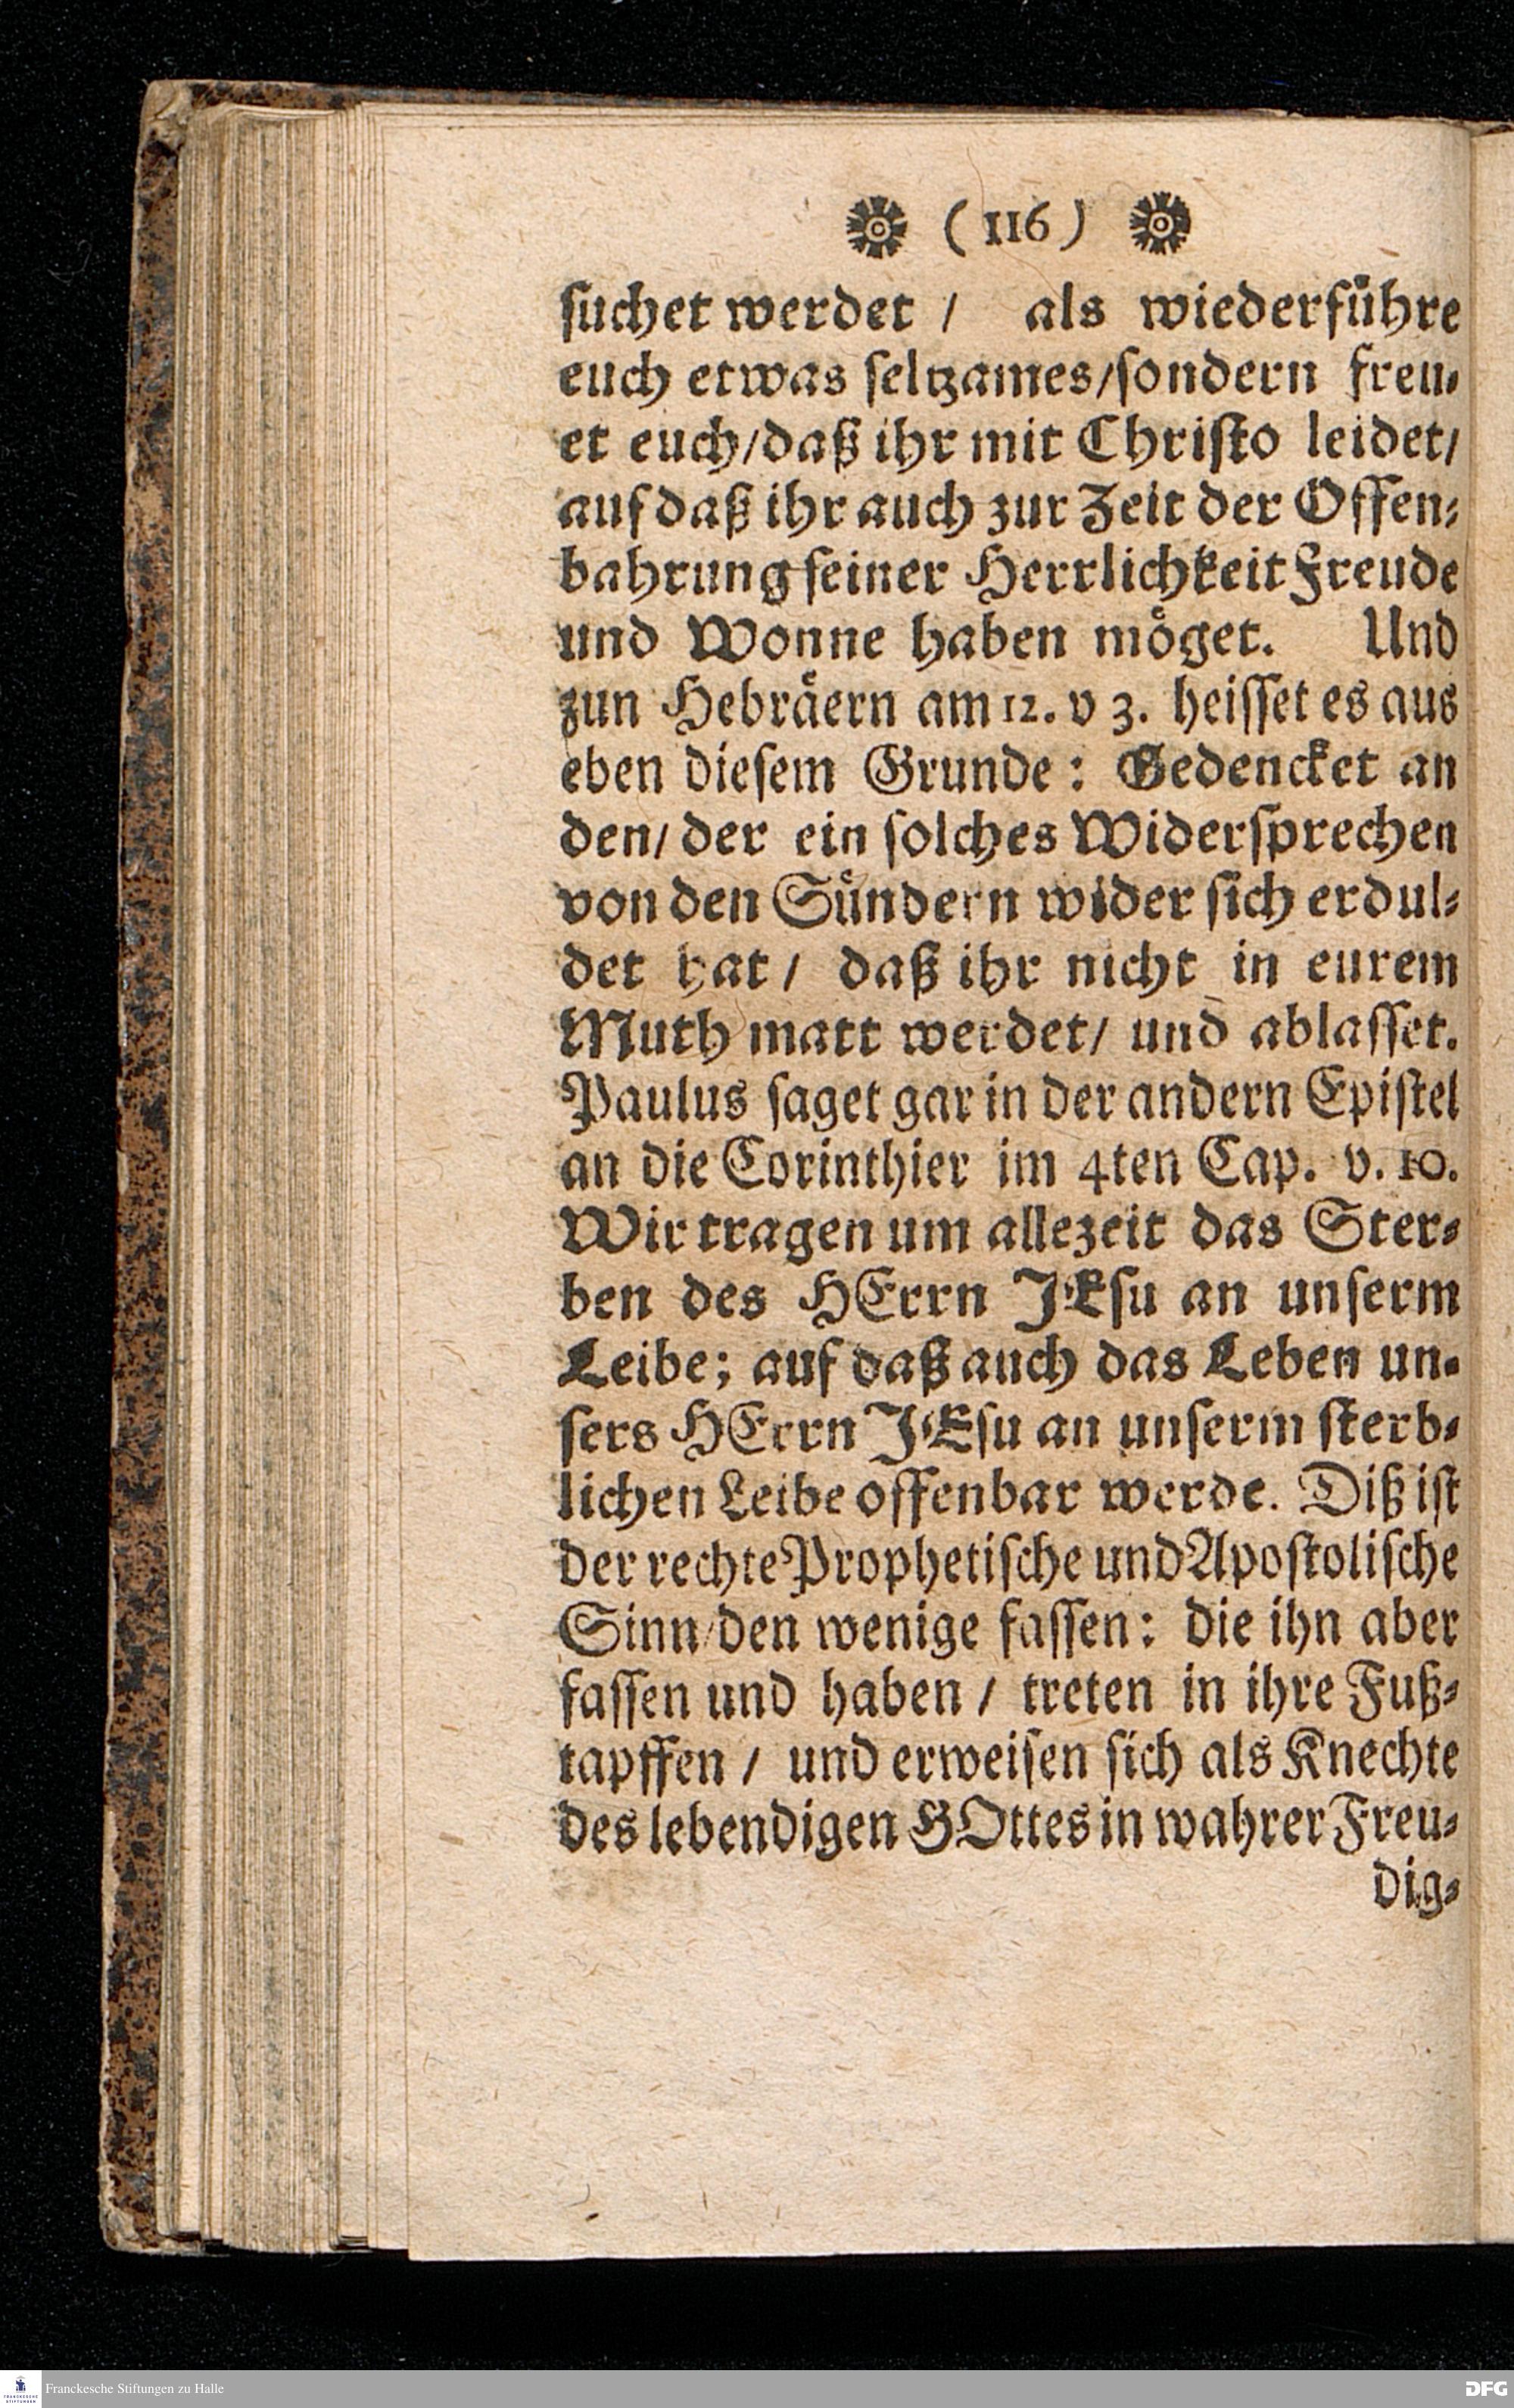 ( 116 )
suchet werdet / als wiederführe
euch etwas seltzames/sondern freu-
et euch/daß ihr mit Christo leidet/
auf daß ihr auch zur Zeit der Offen-
bahrung seiner Herrlichkeit Freude
und Wonne haben möget. Und
zun Hebräern am 12. v 3. heisset es aus
eben diesem Grunde: Gedencket an
den/ der ein solches Widersprechen
von den Sündern wider sich erdul-
det hat / daß ihr nicht in eurem
Muth matt werdet/ und ablasset.
Paulus saget gar in der andern Epistel
an die Corinthier im 4ten Cap. v. 10.
Wir tragen um allezeit das Ster-
ben des HErrn JEsu an unserm
Leibe; auf daß auch das Leben un-
sers HErrn JEsu an unserm sterb-
lichen Leibe offenbar werde. Diß ist
der rechte Prophetische und Apostolische
Sinn/den wenige fassen: die ihn aber
fassen und haben / treten in ihre Fuß-
tapffen / und erweisen sich als Knechte
des lebendigen GOttes in wahrer Freu-
dig-
FRANCKESCHE STIFTUNGEN
Franckesche Stiftungen zu Halle
DFG